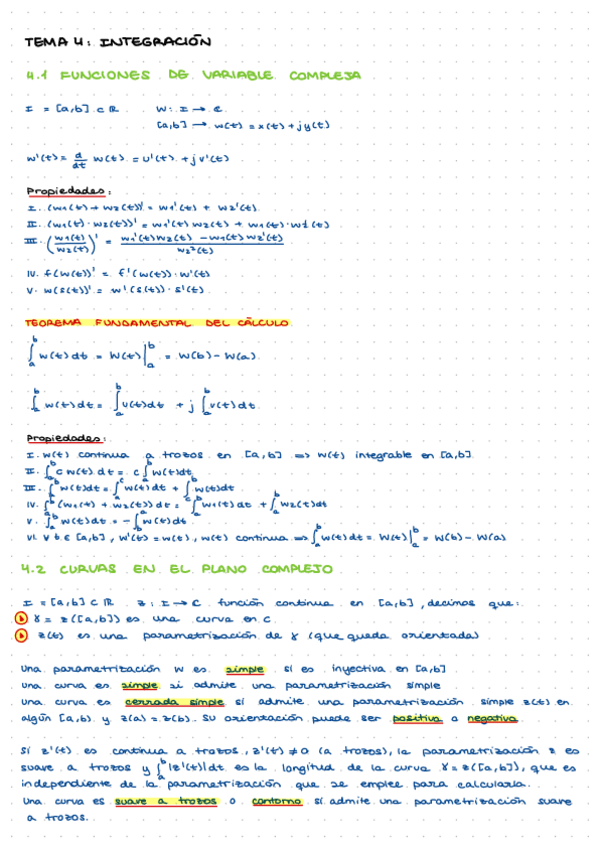 TEMA 4: INTEGRACIÓN
4.1 FUNCIONES DE VARIABLE COMPLEJA
I = [a,b] ⊂ ℝ W: I → ℂ
[a,b] → w(t) = x(t) + jy(t)
w'(t) = d/dt w(t) = u'(t) + jv'(t)
Propiedades:
I. (w1(t) + w2(t))' = w1'(t) + w2'(t)
II. (w1(t) · w2(t))' = w1'(t) w2(t) + w1(t) · w2'(t)
III. (w1(t)/w2(t))' = (w1'(t) w2(t) - w1(t) w2'(t))/w2²(t)
IV. f(w(t))' = f'(w(t)) · w'(t)
V. w(s(t))' = w'(s(t)) · s'(t)
TEOREMA FUNDAMENTAL DEL CÁLCULO
∫_a^b w(t) dt = W(t)|_a^b = W(b) - W(a)
∫_a^b w(t) dt = ∫_a^b u(t) dt + j ∫_a^b v(t) dt
Propiedades:
I. w(t) continua a trozos en [a,b] => w(t) integrable en [a,b]
II. ∫_a^b c w(t) dt = c ∫_a^b w(t) dt
III. ∫_a^b w(t) dt = ∫_a^c w(t) dt + ∫_c^b w(t) dt
IV. ∫_a^b (w1(t) + w2(t)) dt = ∫_a^b w1(t) dt + ∫_a^b w2(t) dt
V. ∫_a^b w(t) dt = - ∫_b^a w(t) dt
VI. ∀ t ∈ [a,b], W'(t) = w(t), w(t) continua => ∫_a^b w(t) dt = W(t)|_a^b = W(b) - W(a)
4.2 CURVAS EN EL PLANO COMPLEJO
I = [a,b] ⊂ ℝ z: I → ℂ función continua en [a,b], decimos que:
γ = z([a,b]) es una curva en ℂ
z(t) es una parametrización de γ (que queda orientada)
Una parametrización w es simple si es inyectiva en [a,b]
una curva es simple si admite una parametrización simple
una curva es cerrada simple si admite una parametrización simple z(t) en
algún [a,b) y z(a) = z(b). Su orientación puede ser positiva o negativa
Si z'(t) es continua a trozos, z'(t) ≠ 0 (a trozos), la parametrización z es
suave a trozos y ∫_a^b |z'(t)| dt es la longitud de la curva γ = z([a,b]), que es
independiente de la parametrización que se emplee para calcularla.
Una curva es suave a trozos o contorno si admite una parametrización suave
a trozos.